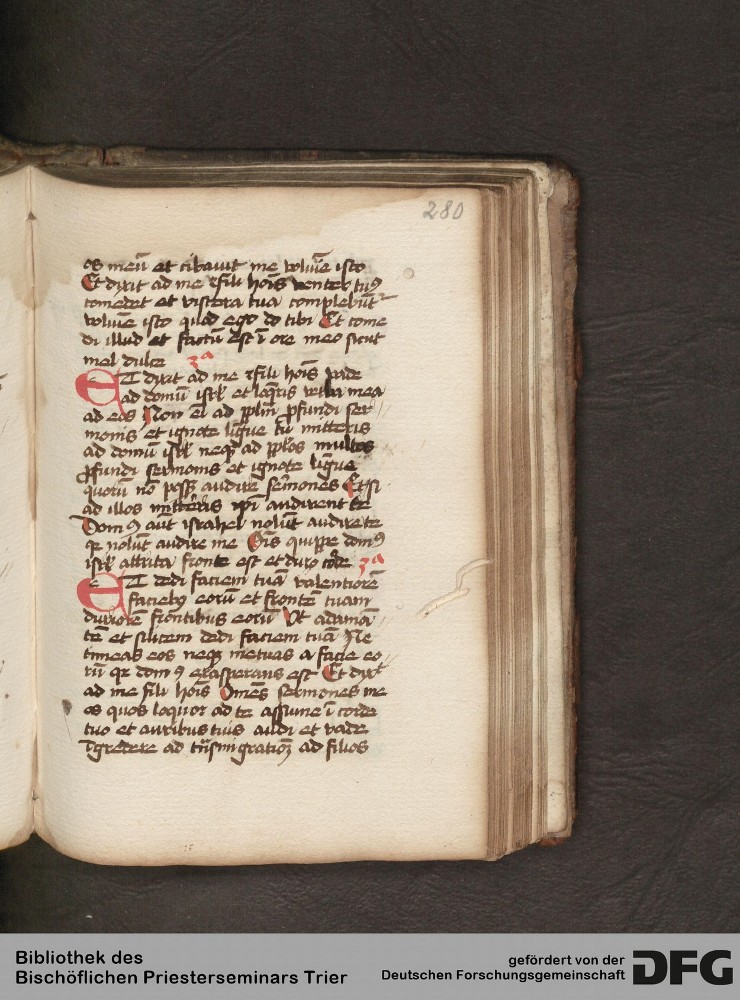 280
os meū et cibauit me volūīe isto
Et dixit ad me fili hoīs venter tuꝰ
comedet et viscera tua complebūt̄
volūīe isto quod ego do tibi Et come
di illud et factū est ī ore meo sicut
mel dulce 2ᵃ
ET dixit ad me fili hoīs vade
ad domū isrl̄ et loq̄ris verba mea
ad eos Non em̄ ad pplm̄ ꝓfundi ser
monis et ignote ligue tu mitteris
ad domū isrl̄ neqꝫ ad ppl̄os multos
ꝓfundi sermonis et ignote līgue
quorū nō possꝭ audire sermones Et si
ad illos mitteris ip̄i audirent te
Domꝰ aūt israhel nolūt audire te
qꝛ nolūt audire me Oīs quippe domꝰ
isrl̄ attrita fronte est et duro corde 3ᵃ
ET dedi faciem tuā valentiorē
faciebꝫ eorū et frontē tuam
duriorē frontibus eorū Ut adamā
tē et silicem dedi faciem tuā Ne
timeas eos neqꝫ metuas a facie eo
rū qꝛ domꝰ exasperans est Et dixit
ad me fili hoīs Omēs sermones me
os quos loquor ad te assume ī corde
tuo et auribus tuis audi et vade
īgredere ad trāsmigratiōꝫ ad filios
Bibliothek des
Bischöflichen Priesterseminars Trier
gefördert von der
Deutschen Forschungsgemeinschaft
DFG